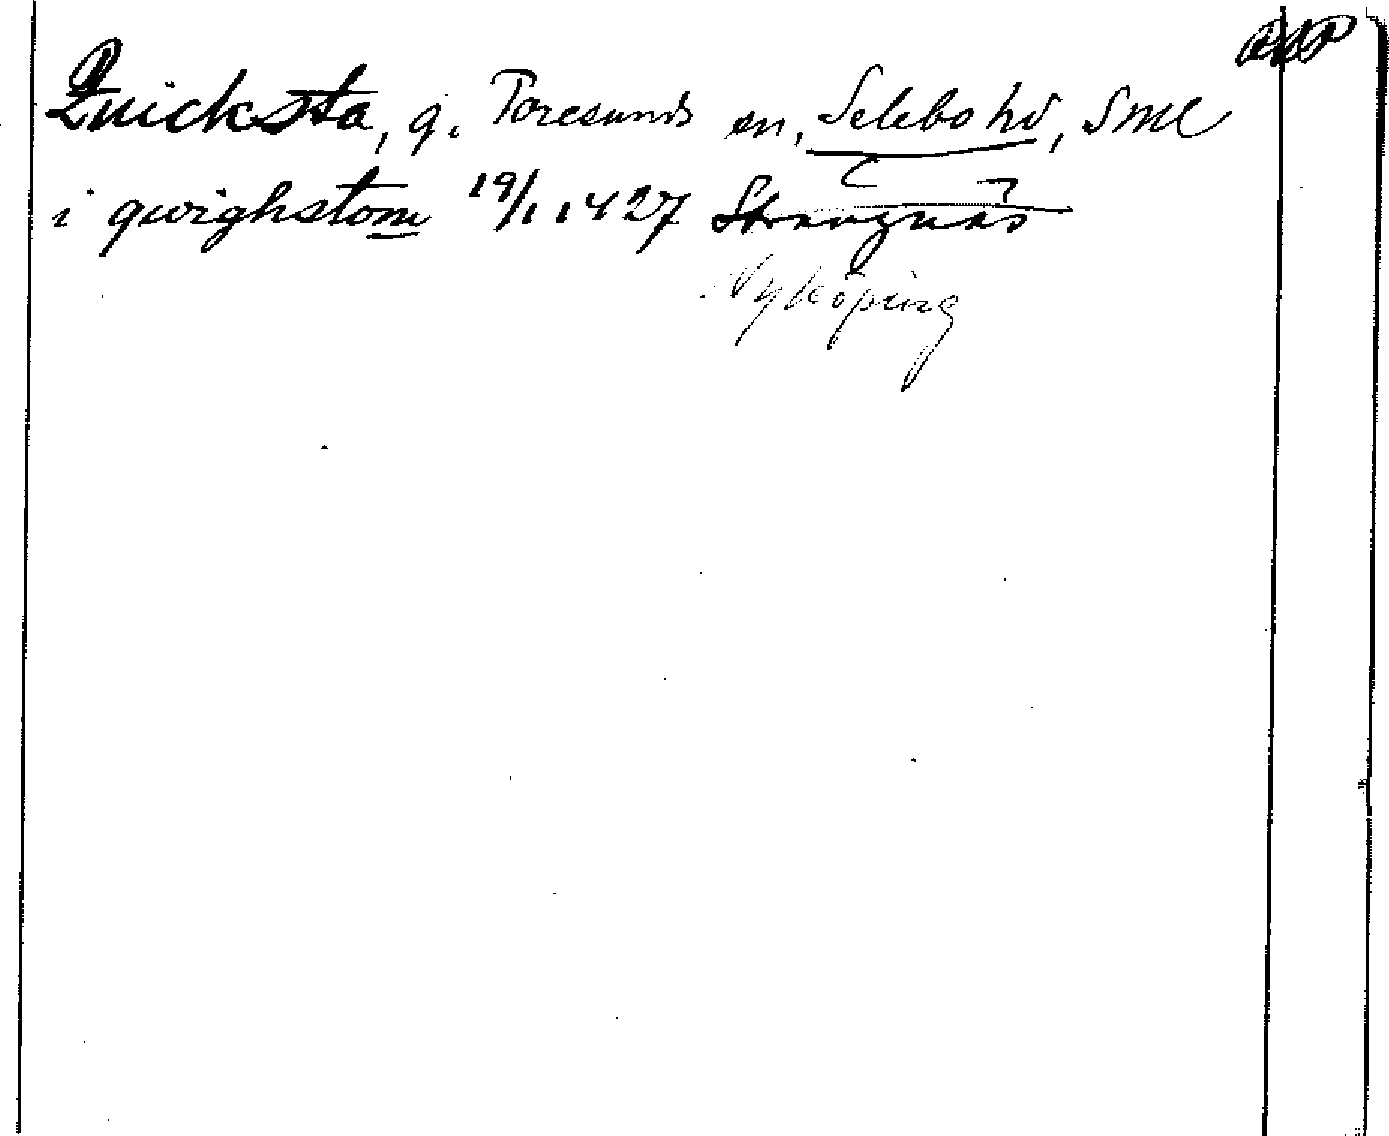 Quicksta, g. Toresunds sn, Selebo hd, Sml
i qwighstom 19/1 1427 Strengnäs
Nyköping